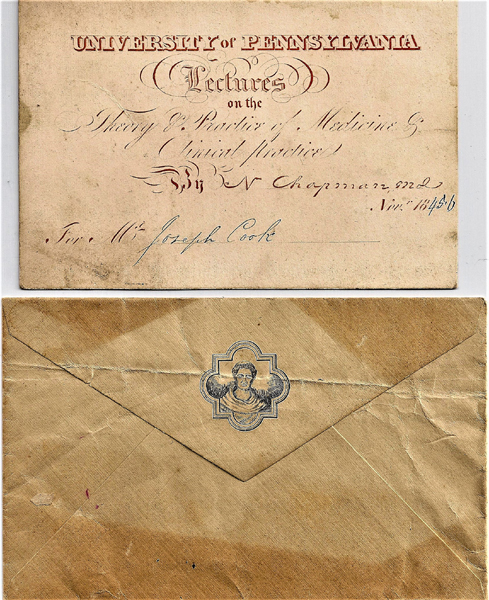 UNIVERSITY of PENNSYLVANIA
Lectures
on the
Theory & Practice of Medicine &
Clinical Practice
By N Chapman, M.D
Nov.r 1845-6
For Mr. Joseph Cook